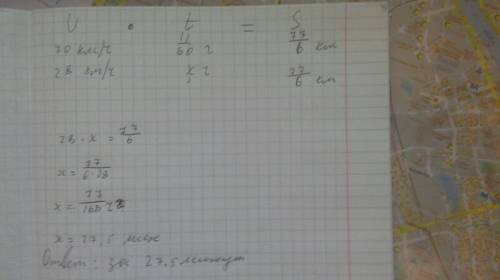 V · t = S
70 км/ч 11/60 ч 77/6 км
28 км/ч x ч 77/6 км
28 · x = 77/6
x = 77/6·28
x = 77/168 ч
x = 27,5 мин
Ответ: за 27,5 минут